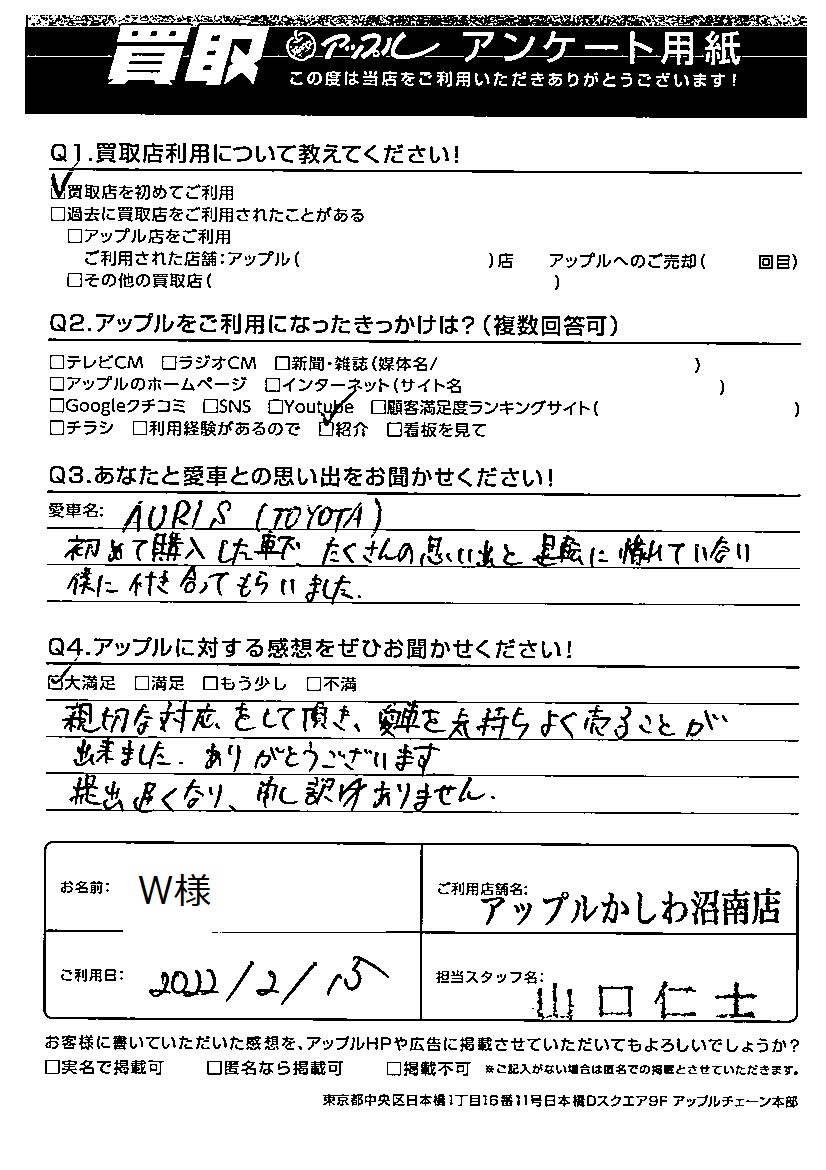 買取 アップル アンケート用紙
この度は当店をご利用いただきありがとうございます!
Q1.買取店利用について教えてください!
☑買取店を初めてご利用
□過去に買取店をご利用されたことがある
□アップル店をご利用
ご利用された店舗:アップル( )店 アップルへのご売却( 回目)
□その他の買取店( )
Q2.アップルをご利用になったきっかけは?(複数回答可)
□テレビCM □ラジオCM □新聞・雑誌(媒体名/ )
□アップルのホームページ □インターネット(サイト名 )
□Googleクチコミ □SNS □Youtube □顧客満足度ランキングサイト( )
□チラシ □利用経験があるので ☑紹介 □看板を見て
Q3.あなたと愛車との思い出をお聞かせください!
愛車名: AURIS (TOYOTA)
初めて購入した車で、たくさんの思い出と運転に慣れていない
僕に付き合ってもらいました.
Q4.アップルに対する感想をぜひお聞かせください!
☑大満足 □満足 □もう少し □不満
親切な対応をして頂き、愛車を気持ちよく売ることが
出来ました. ありがとうございます
提出遅くなり、申し訳けありません.
お名前: W様 ご利用店舗名: アップルかしわ沼南店
ご利用日: 2022/2/15 担当スタッフ名: 山口仁士
お客様に書いていただいた感想を、アップルHPや広告に掲載させていただいてもよろしいでしょうか?
□実名で掲載可 □匿名なら掲載可 □掲載不可 ※ご記入がない場合は匿名での掲載とさせていただきます。
東京都中央区日本橋1丁目16番11号日本橋Dスクエア9F アップルチェーン本部